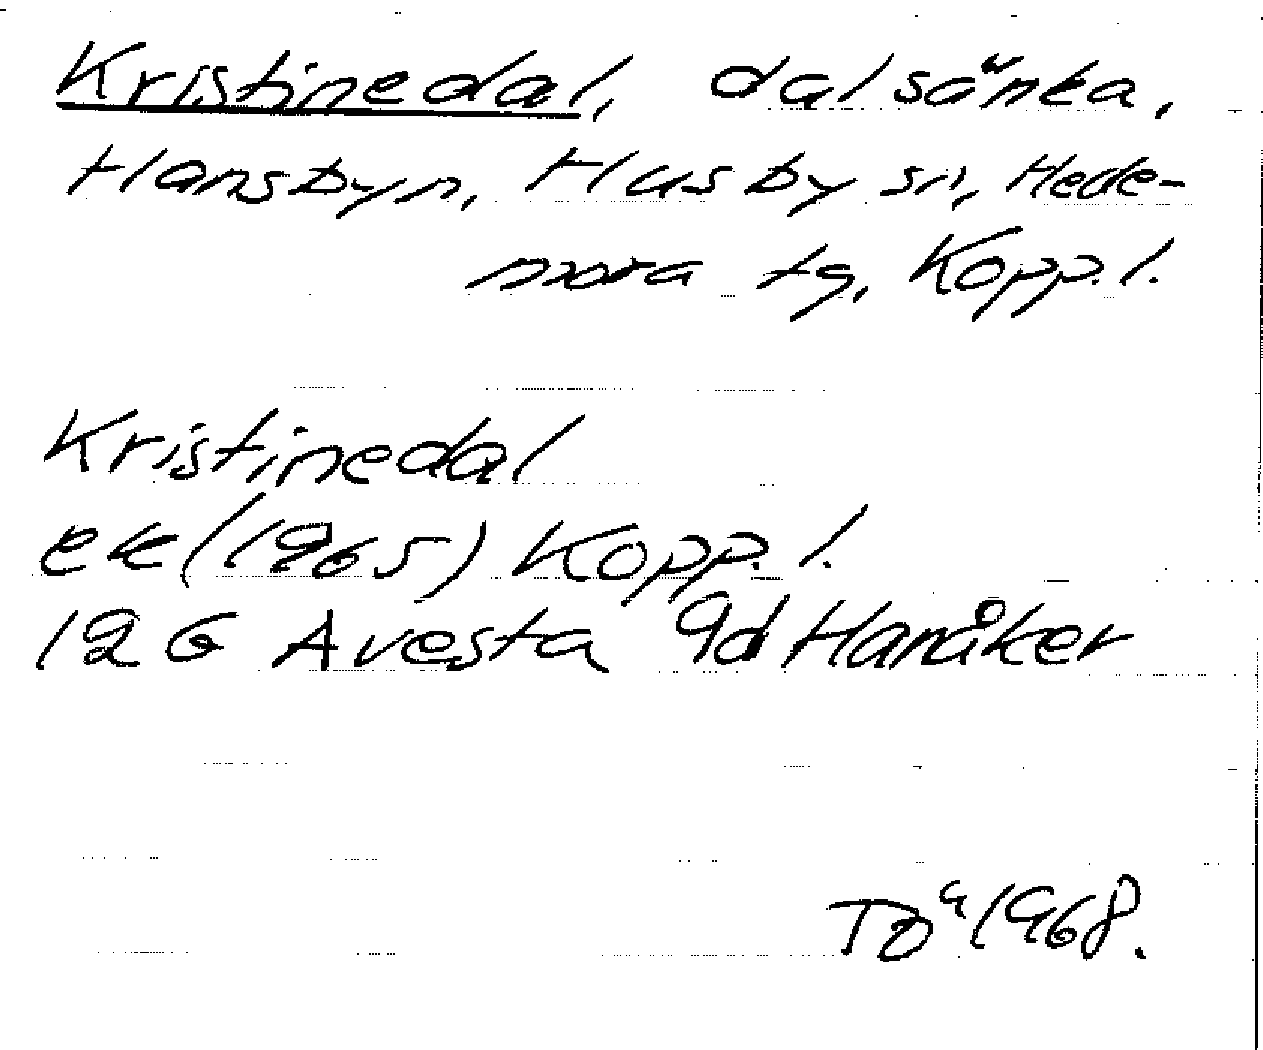 Kristinedal, dalsänka,
Hansbyn, Husby sn, Hede-
mora tg, Kopp. l.
Kristinedal
ek (1965) Kopp. l.
12 G Avesta 9d Hanåker
TBä 1968.